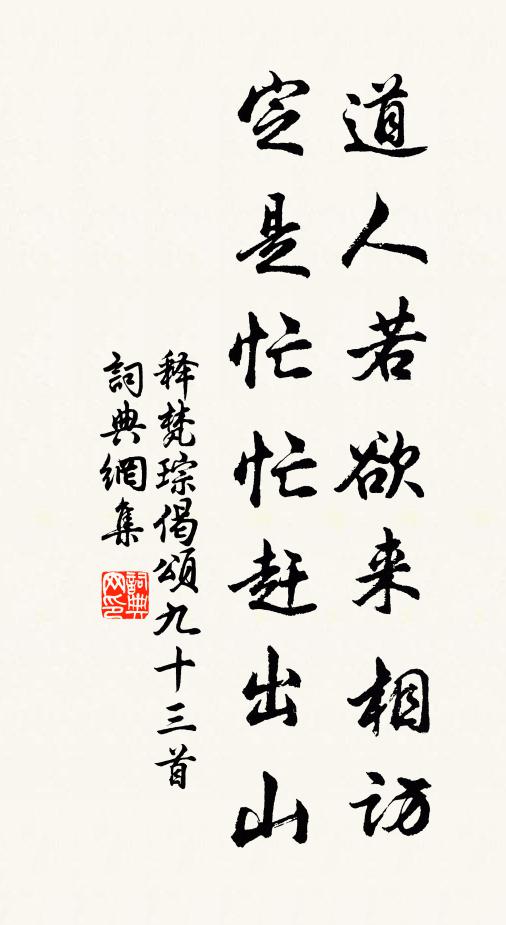 道人若欲来相访
定是忙忙赶出山
释梵琮偈頌九十三首
詞典網集
詞典网印